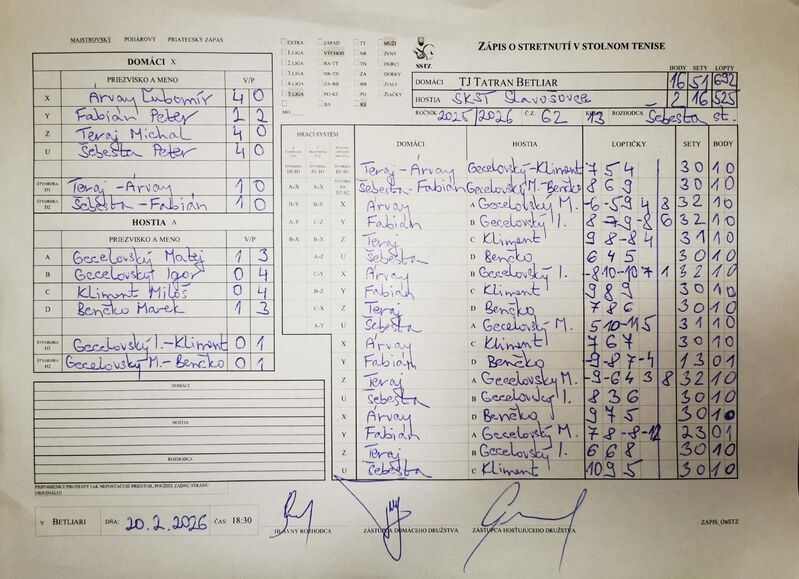 MAJSTROVSKÝ POHÁROVÝ PRIATEĽSKÝ ZÁPAS
EXTRA ZÁPAD TT MUŽI
1.LIGA VÝCHOD NR ŽENY
2.LIGA BA-TT TN DORCI
3.LIGA NR-TN ZA DORKY
4.LIGA ZA-BB BB ŽIACI
5.LIGA PO-KE PO ŽIAČKY
BA KE
MO
SSTZ
ZÁPIS O STRETNUTÍ V STOLNOM TENISE
BODY SETY LOPTY
DOMÁCI TJ TATRAN BETLIAR 16 51 692
HOSTIA ŠKST Slavošovce 2 16 525
ROČNÍK 2025/2026 Č.Z. 62 13 ROZHODCA Šebesta st.
DOMÁCI X
PRIEZVISKO A MENO V/P
X Árvay Ľubomír 4 0
Y Fabián Peter 2 2
Z Teraj Michal 4 0
U Šebesta Peter 4 0
ŠTVORHRA D1 Teraj - Árvay 1 0
ŠTVORHRA D2 Šebesta - Fabián 1 0
HOSTIA A
PRIEZVISKO A MENO V/P
A Gecelovský Matej 1 3
B Gecelovský Igor 0 4
C Kliment Miloš 0 4
D Benčko Marek 1 3
ŠTVORHRA H1 Gecelovský I. - Kliment 0 1
ŠTVORHRA H2 Gecelovský M. - Benčko 0 1
DOMÁCI
HOSTIA
ROZHODCA
PRIPOMIENKY/PROTESTY (AK NEPOSTAČUJE PRIESTOR, POUŽITE ZADNÚ STRANU ORIGINÁLU)
HRACÍ SYSTÉM DOMÁCI HOSTIA LOPTIČKY SETY BODY
Teraj - Árvay Gecelovský - Kliment 7 5 4 3 0 1 0
A-X A-X Šebesta - Fabián Gecelovský M. - Benčko 8 6 9 3 0 1 0
B-Y B-Y X Árvay A Gecelovský M. -6 -5 9 4 8 3 2 1 0
A-Y C-Z Y Fabián B Gecelovský I. 8 -7 9 -8 6 3 2 1 0
B-X B-X Z Teraj C Kliment 9 8 -8 4 3 1 1 0
U Šebesta D Benčko 6 4 5 3 0 1 0
C-Y X Árvay B Gecelovský I. -8 10 -10 7 1 3 2 1 0
B-Z Y Fabián C Kliment 9 8 9 3 0 1 0
C-X Z Teraj D Benčko 7 8 6 3 0 1 0
A-Y U Šebesta A Gecelovský M. 5 10 -11 5 3 1 1 0
X Árvay C Kliment 7 6 7 3 0 1 0
Y Fabián D Benčko -9 -8 7 -4 1 3 0 1
Z Teraj A Gecelovský M. -9 -6 4 3 8 3 2 1 0
U Šebesta B Gecelovský I. 8 3 6 3 0 1 0
X Árvay D Benčko 9 7 5 3 0 1 0
Y Fabián A Gecelovský M. 7 8 -8 -12 2 3 0 1
Z Teraj B Gecelovský I. 6 6 8 3 0 1 0
U Šebesta C Kliment 10 9 5 3 0 1 0
V BETLIARI DŇA: 20.2.2026 ČAS: 18:30
HLAVNÝ ROZHODCA ZÁSTUPCA DOMÁCEHO DRUŽSTVA ZÁSTUPCA HOSŤUJÚCEHO DRUŽSTVA ZAPIS_OaSTZ